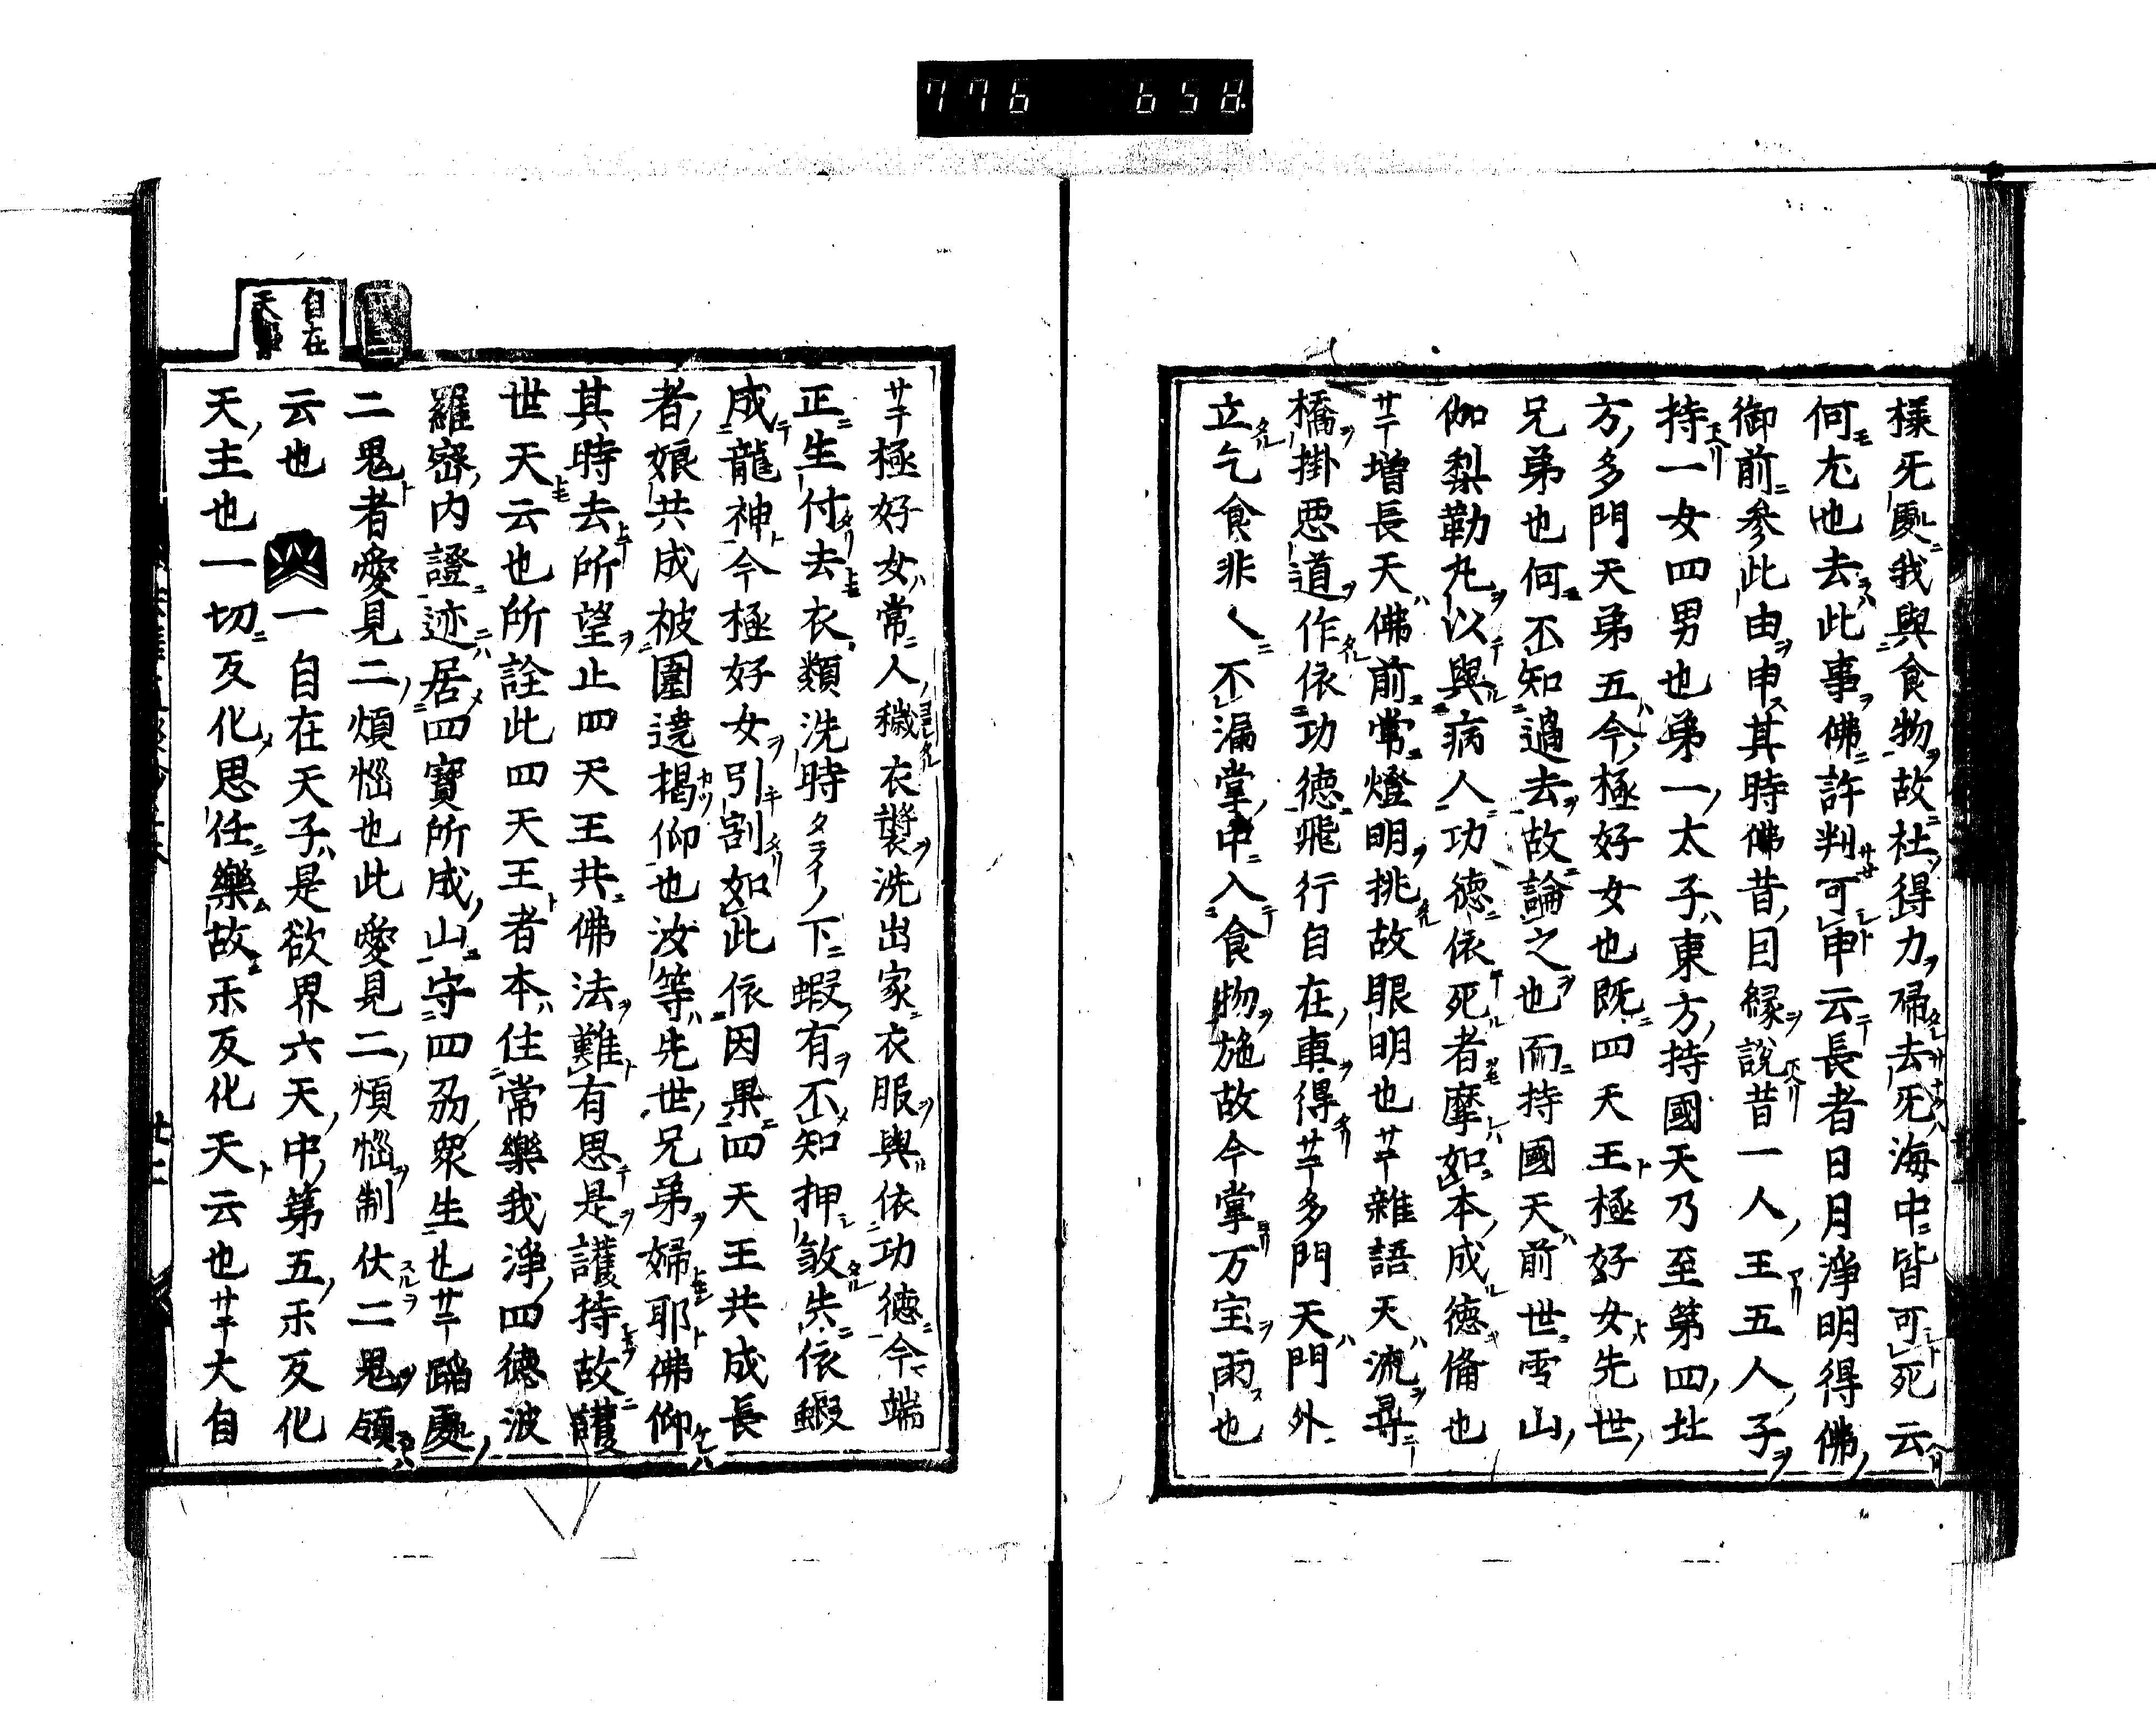 776 658
様死処我與食物故杜得力帰去死海中皆可死云
何尤也去此事佛許判可申云長者日月淨明得佛
御前參此由申其時佛昔因縁説昔一人王五人子
持一女四男也弟一太子東方持國天乃至第四北
方多門天弟五今極好女也既四天王極好女先世
兄弟也何不知過去故論之也而持國天前世雪山
伽梨勒丸以與病人功德依死者摩如本成德備也
サテ増長天佛前常燈明挑故眼明也サテ雜語天流尋
橋掛悪道作依功德飛行自在車得サテ多門天門外
立乞食非人不漏掌中入食物施故今掌万宝雨也
サテ極好女常人穢衣裳洗出家衣服與依功德今端
正生付去衣類洗時タライノ下蝦有不知押殺失依蝦
成龍神今極好女引割如此依因果四天王共成長
者娘共成被圍遶掲仰也汝等先世兄弟婦耶佛仰
其時去所望止四天王共佛法難有思是護持故護
世天云也所詮此四天王者本住常樂我淨四德波
羅密内證迹居四寶所成山守四劦衆生也サテ蹈處
二鬼者愛見二煩悩也此愛見二煩悩制伏二鬼領
云也 一自在天子是欲界六天中第五示反化
天主也一切反化思任樂故示反化天云也サテ大自
自在
天事